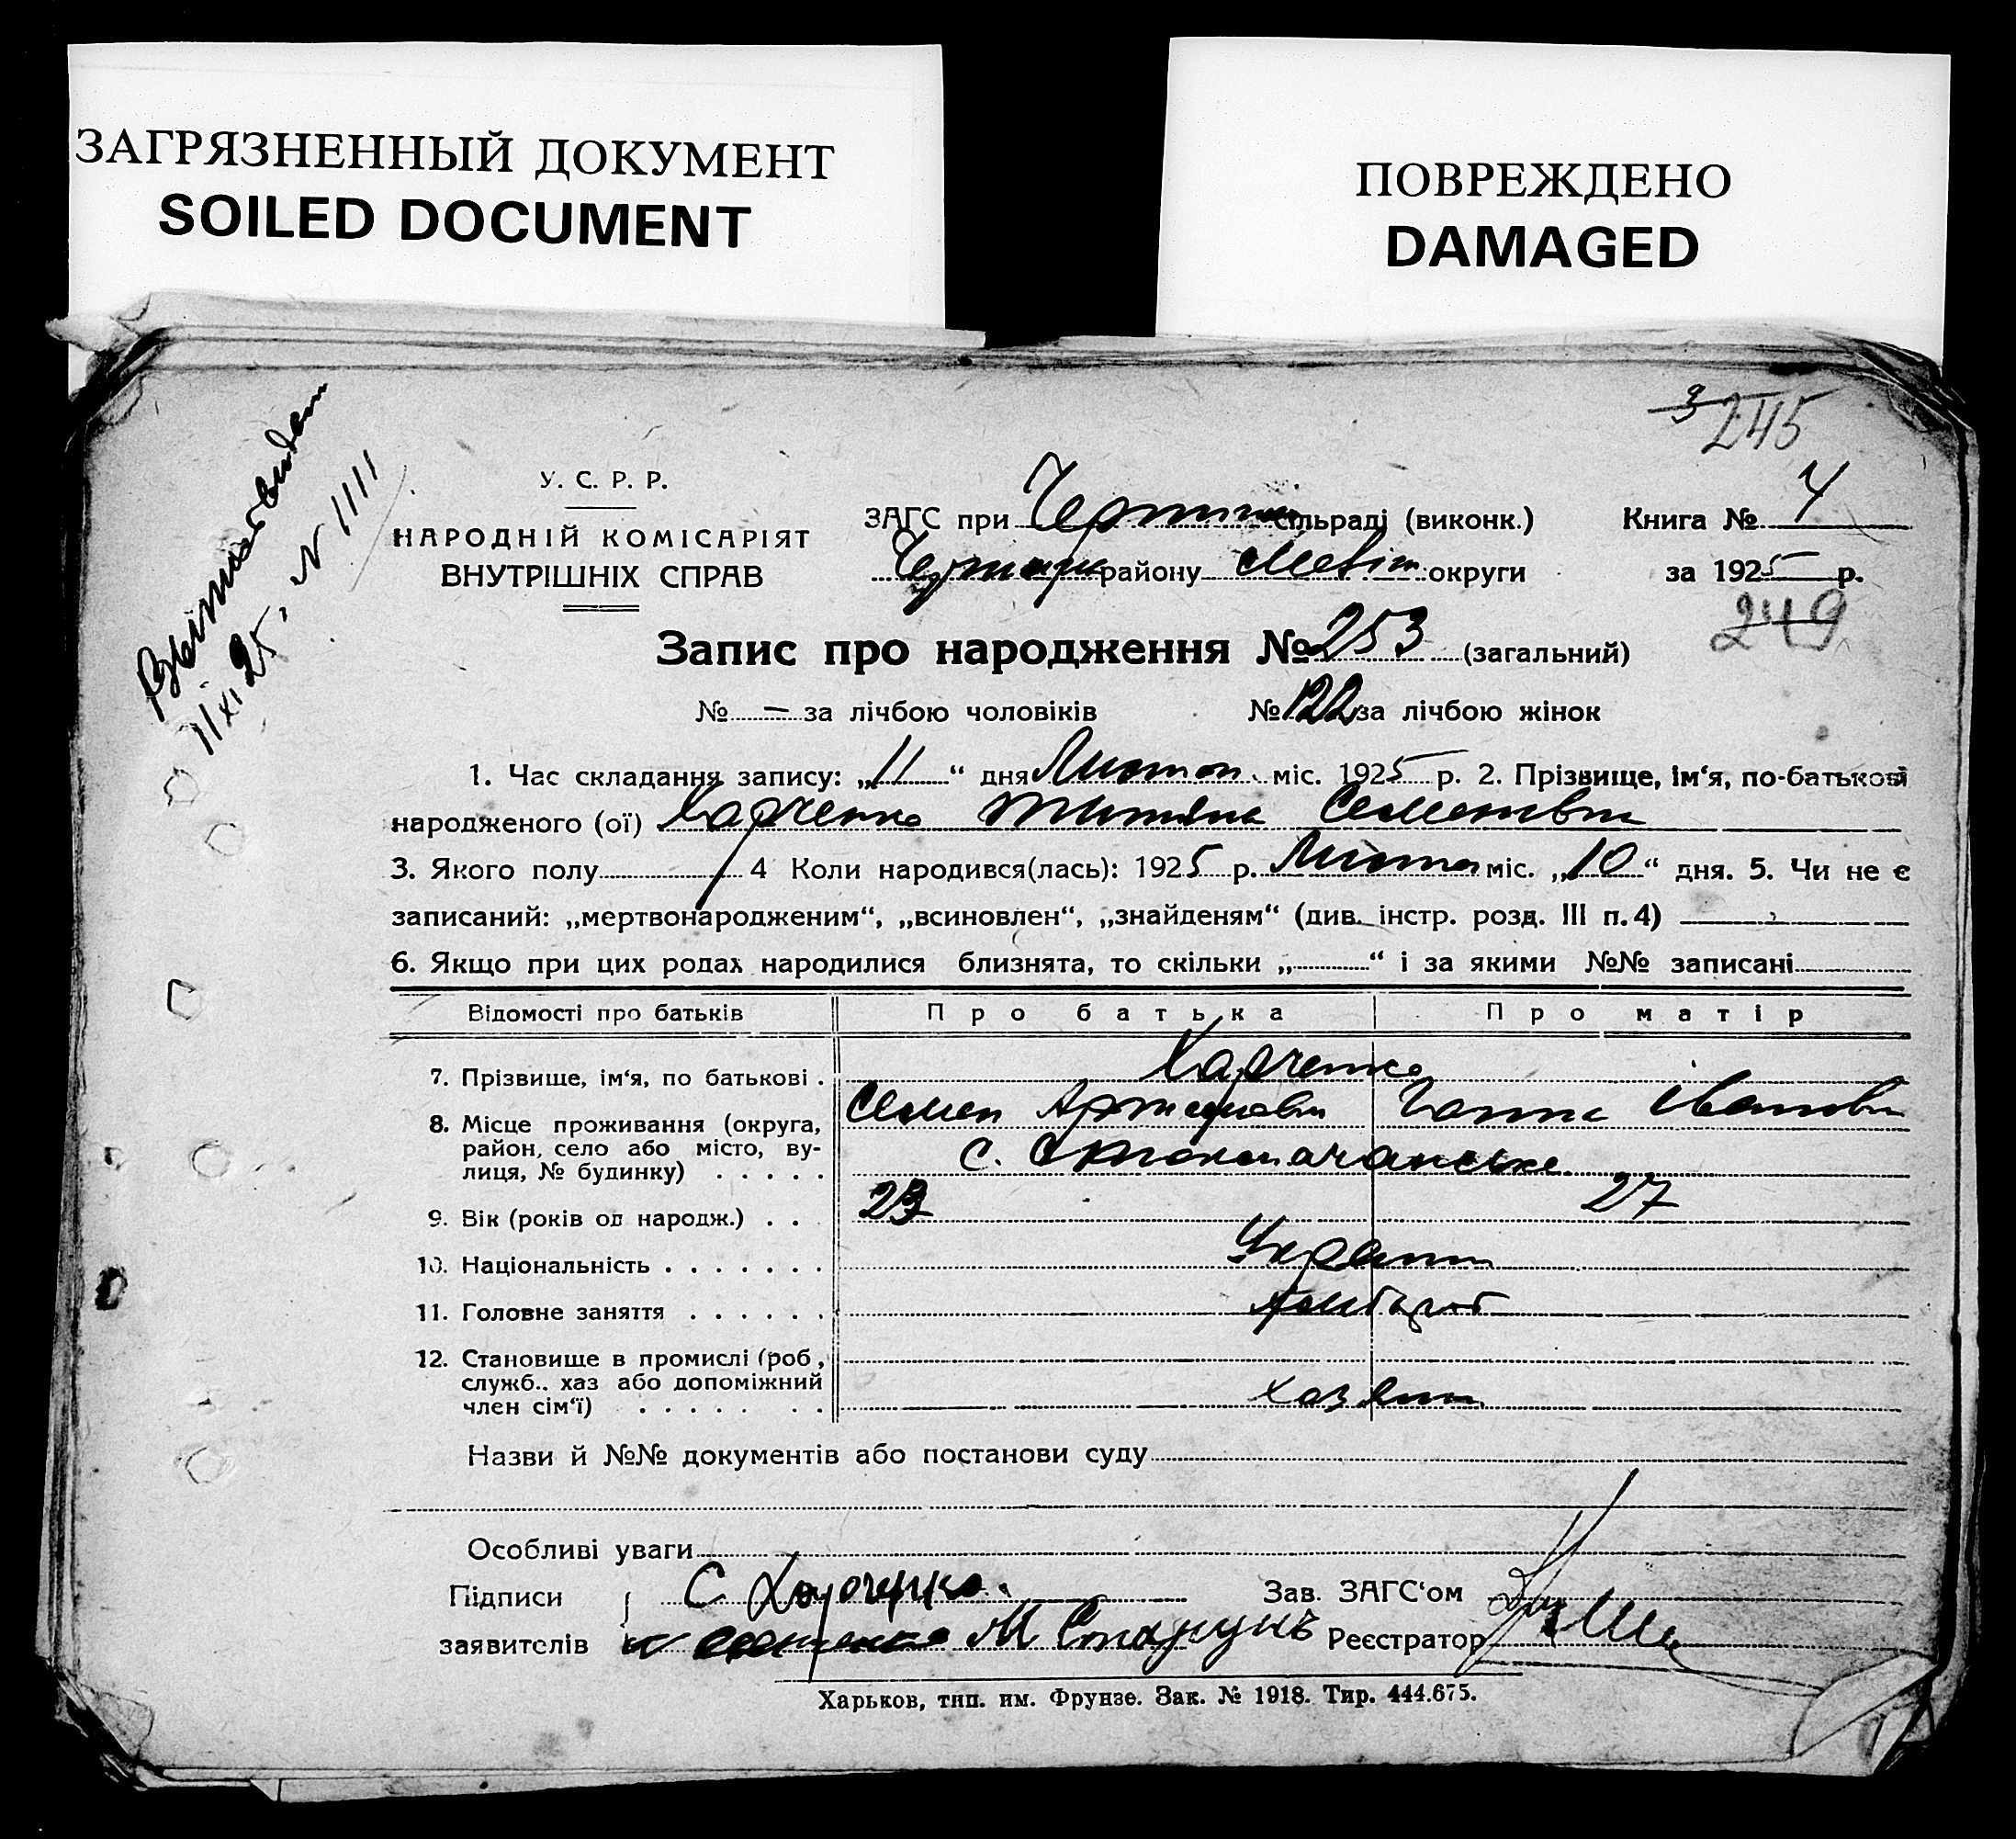 ЗАГРЯЗНЕННЫЙ ДОКУМЕНТ
SOILED DOCUMENT
ПОВРЕЖДЕНО
DAMAGED
3 245
11/XI 25, N 1111
У. С. Р. Р.
НАРОДНІЙ КОМІСАРІЯТ
ВНУТРІШНІХ СПРАВ
ЗАГС при сільраді (виконк.)
району округи
Книга № 4
за 1925 р.
249
Запис про народження № 253 (загальний)
№ — за лічбою чоловіків № 122 за лічбою жінок
1. Час складання запису: „11“ дня Листоп міс. 1925 р. 2. Прізвище, ім‘я, по-батькові
народженого (ої) Харченко Титяна Семеновн
3. Якого полу 4 Коли народився(лась): 1925 р. Листоп міс. „10“ дня. 5. Чи не є
записаний: „мертвонародженим“, „всиновлен“, „знайденям“ (див. інстр. розд. III п. 4)
6. Якщо при цих родах народилися близнята, то скільки „ “ і за якими №№ записані
Відомості про батьків Про батька Про матір
7. Прізвище, ім‘я, по батькові . Харченко
Семен Ганна Івановн
8. Місце проживання (округа,
район, село або місто, ву-
лиця, № будинку) . . . . . с.
9. Вік (років од народж.) . . 23 27
10. Національність . . . . . . . Украин
11. Головне заняття . . . . . . хлібороб
12. Становище в промислі (роб,
служб., хаз або допоміжний
член сім‘ї) . . . . . . . хазяин
Назви й №№ документів або постанови суду
Особливі уваги
Підписи С Харченко.
заявителів М
Зав. ЗАГС‘ом
Реєстратор
Харьков, тип. им. Фрунзе. Зак. № 1918. Тир. 444.675.